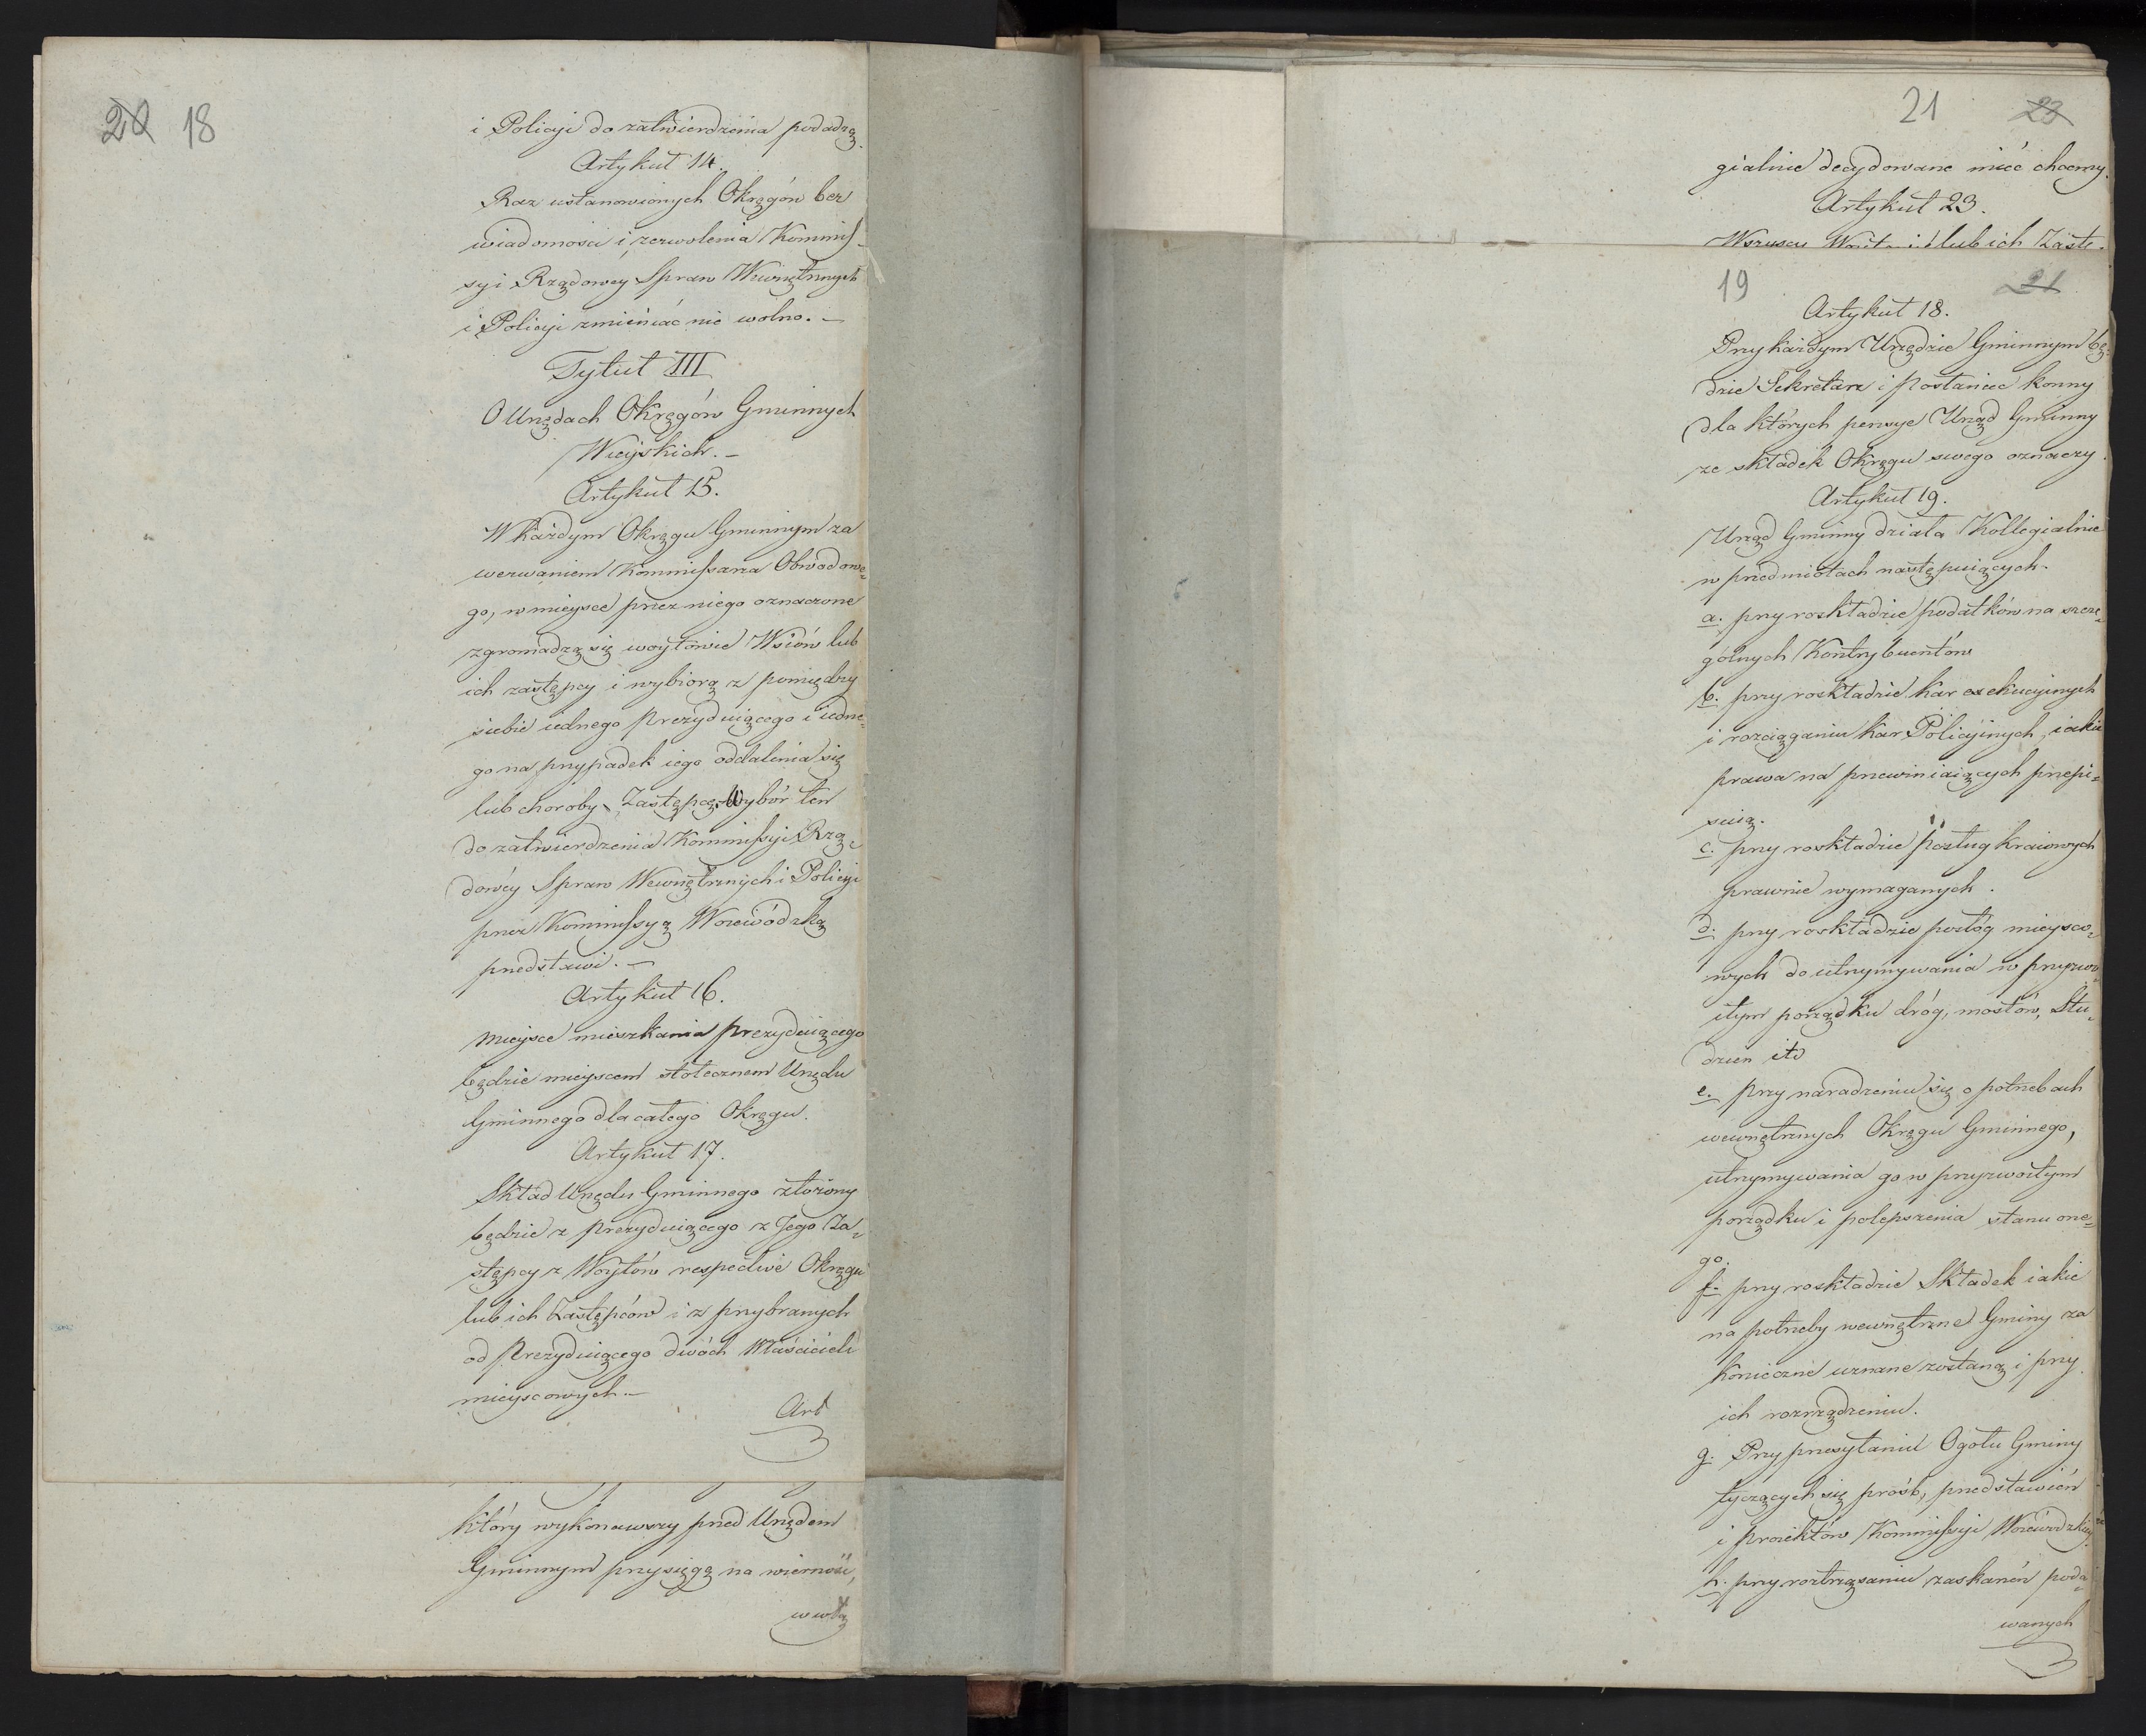 20 18
i Policyi do zatwierdzenia podadzą.
Artykuł 14.
Raz ustanowionych Okręgów bez
wiadomości i zezwolenia Kommis-
syi Rządowey Spraw Wewnętrznych
i Policyi zmieniać nie wolno. –
Tytuł III
O Urzędach Okręgów Gminnych
Wieyskich. –
Artykuł 15.
W każdym Okręgu Gminnym za
wezwaniem Kommissarza Obwodowe=
go, w mieysce przez niego oznaczone
zgromadzą się woytowie Wsiów lub
ich zastępcy i wybiorą z pomiędzy
siebie iednego Prezyduiącego i iedne=
go na przypadek iego oddalenia się
lub choroby, Zastępcę. Wybór ten
do zatwierdzenia Kommissyi Rzą=
dowéy Spraw Wewnętrznych i Policyi
przez Kommissyą Woiewódzką
przedstawi. –
Artykuł 16.
Mieysce mieszkania Prezyduiącego
będzie mieyscem stołecznem Urzędu
Gminnego dla całego Okręgu.
Artykuł 17.
Skład Urzędu Gminnego złożony
będzie z Prezyduiącego z Jego Za=
stępcy z Woytów respective Okręgu
lub ich Zastępców i z przybranych
od Prezyduiącego dwóch Właścicieli
mieyscowych. –
Art
który wykonawszy przed Urzędem
Gminnym przysięgę na wierność,
wwłą
21 23
gialnie decydowane mieć chcemy.
Artykuł 23.
Wszyscy lub ich Zastę=
19 21
Artykuł 18.
Przy każdym Urzędzie Gminnym bę=
dzie Sekretarz i posłaniec konny
dla których pensye Urząd Gminny
ze składek Okręgu swego oznaczy.
Artykuł 19.
Urząd Gminny działa Kollegialnie
w przedmiotach następuiących.
a. przy rozkładzie podatków na szcze=
gólnych Kontrybuentów
b. przy rozkładzie kar exekucyinych
i rozciąganiu kar Policyinych, iakie
prawa na przewiniaiących przepi=
suią.
c. przy rozkładzie posług kraiowych
prawnie wymaganych.
d. przy rozkładzie posłóg mieysco=
wych do utrzymywania w przyzwo=
itym porządku dróg, mostów, Stu=
dzien itd
e. przy naradzeniu się o potrzebach
wewnętrznych Okręgu Gminnego,
utrzymywania go w przyzwoitym
porządku i polepszenia stanu one=
go.
f. przy rozkładzie Składek iakie
na potrzeby wewnętrzne Gminy za
konieczne uznane zostaną i przy
ich rozrządzeniu.
g. Przy przesyłaniu Ogółu Gminy
tyczących się próśb, przedstawień
i proiektów Kommissyi Woiewódzkiey
h. przy roztrząsaniu zaskarzeń poda=
wanych